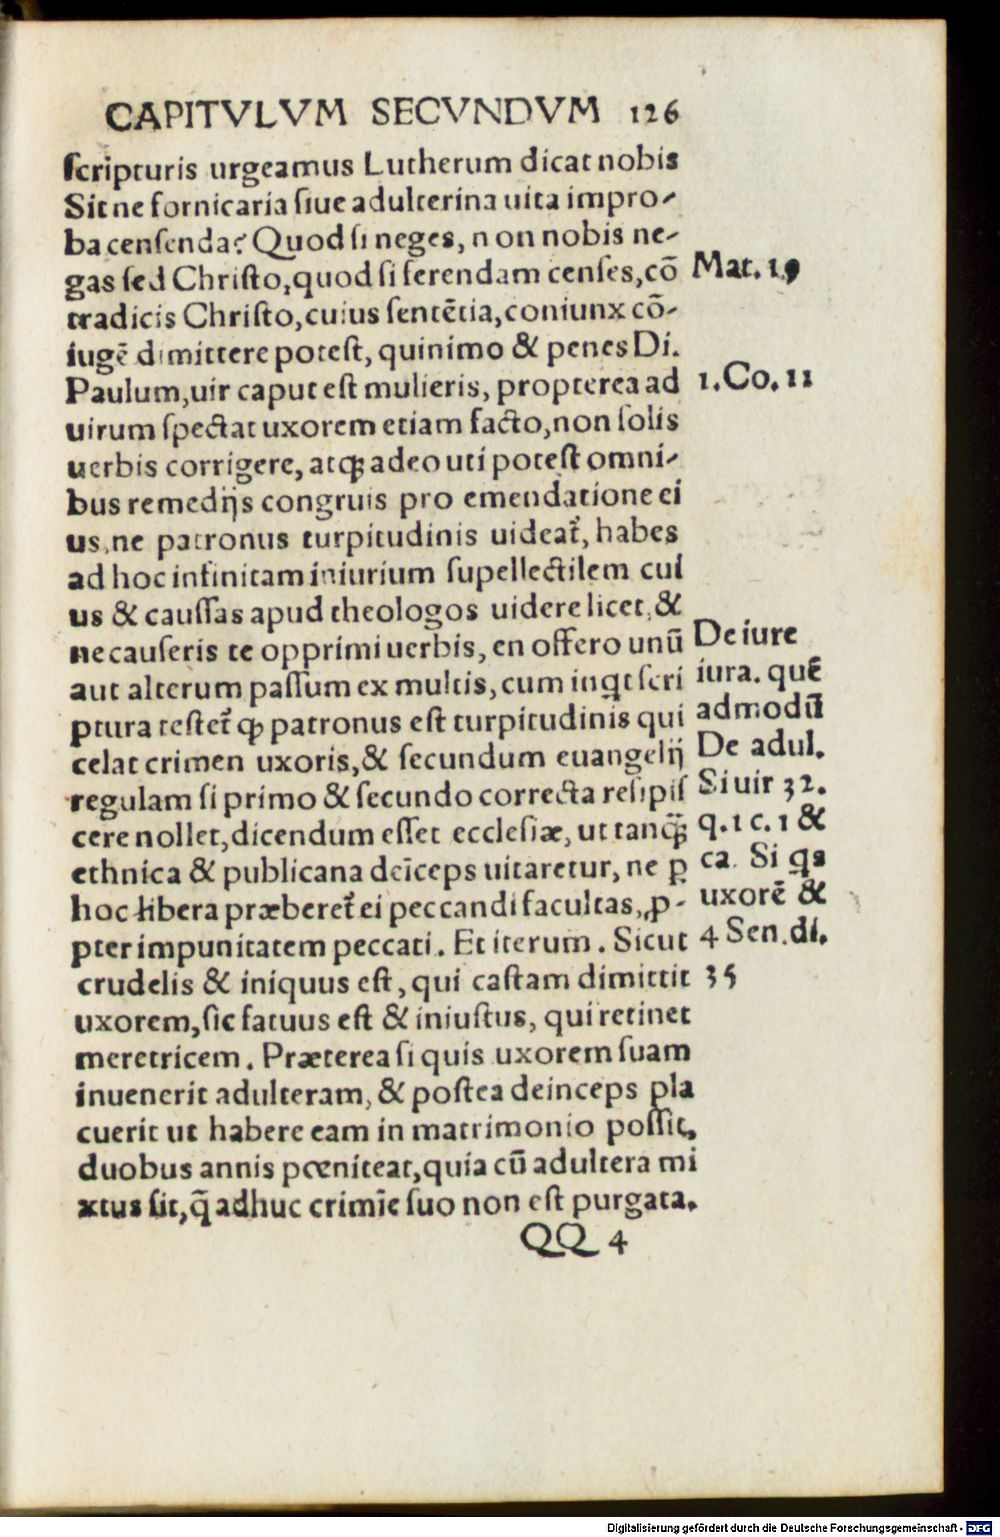 CAPITVLVM SECVNDVM 126
ſcripturis urgeamus Lutherum dicat nobis
Sit ne fornicaria ſiue adulterina uita impro⸗
ba cenſenda? Quod ſi neges, non nobis ne⸗
gas ſed Chriſto, quod ſi ferendam cenſes, cō
tradicis Chriſto, cuius ſentētia, coniunx cō⸗
iugē dimittere poteſt, quinimo & penes Di.
Paulum, uir caput eſt mulieris, propterea ad
uirum ſpectat uxorem etiam facto, non ſolis
uerbis corrigere, atqꝫ adeo uti poteſt omni⸗
bus remedijs congruis pro emendatione ei
us, ne patronus turpitudinis uideat᷑, habes
ad hoc infinitam iniurium ſupellectilem cui
us & cauſſas apud theologos uidere licet, &
ne cauſeris te opprimi uerbis, en offero unū
aut alterum paſſum ex multis, cum inqt ſcri
ptura teſtet᷑ ꝙ patronus eſt turpitudinis qui
celat crimen uxoris, & ſecundum euangelij
regulam ſi primo & ſecundo correcta reſipiſ
cere nollet, dicendum eſſet ecclesiæ, ut tanqꝫ̄
ethnica & publicana deīceps uitaretur, ne ꝑ
hoc libera præberet᷑ ei peccandi facultas, ꝓ-
pter impunitatem peccati. Et iterum. Sicut
crudelis & iniquus eſt, qui caſtam dimittit
uxorem, ſic fatuus eſt & iniuſtus, qui retinet
meretricem. Præterea ſi quis uxorem ſuam
inuenerit adulteram, & poſtea deinceps pla
cuerit ut habere eam in matrimonio poſſit,
duobus annis pœniteat, quia cū adultera mi
xtus ſit, q̄ adhuc crimīe ſuo non eſt purgata.
QQ 4
Mat. 19
1. Co. 11
De iure
iura. quē
admodū
De adul.
Si uir 32.
q. 1 c. 1 &
ca. Si qs
uxorē &
4 Sen. di.
35
Digitalisierung gefördert durch die Deutsche Forschungsgemeinschaft - DFG